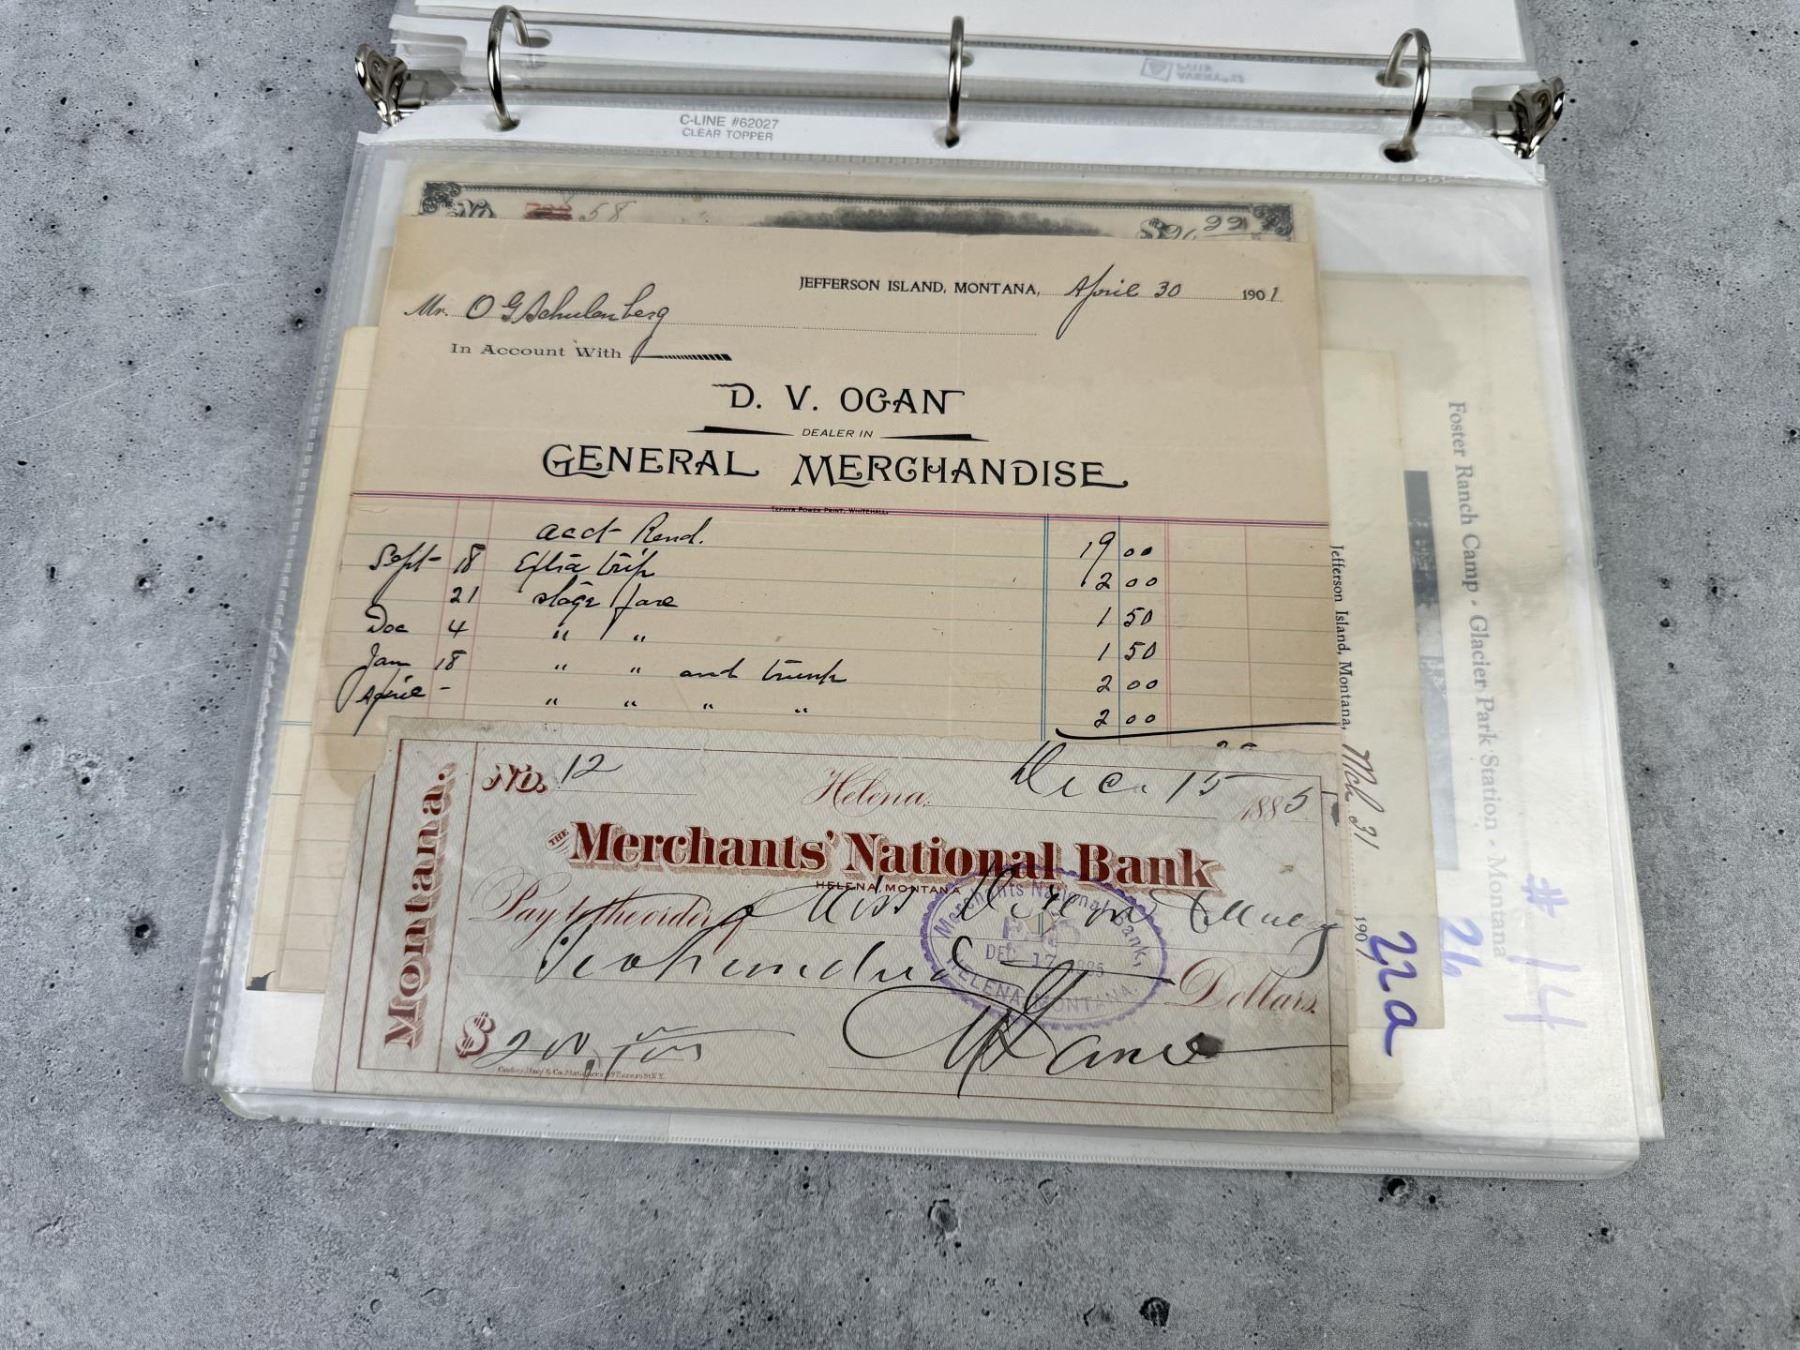 C-LINE #62027
CLEAR TOPPER
No. 58
22
JEFFERSON ISLAND, MONTANA, April 30 1901
Mr. O G Schulenberg
In Account With
D. V. OGAN
DEALER IN
GENERAL MERCHANDISE
acct Rend. 19 00
Sept 18 Extra trip 2 00
21 stage fare 1 50
Dec 4 " " 1 50
Jan 18 " " and trunk 2 00
April - " " " " 2 00
No. 12 Helena, Dec. 15 1885
THE Merchants' National Bank
HELENA, MONTANA
Pay to the order of Miss
Two hundred Dollars.
$ 200.
Montana.
Merchants National Bank,
PAID
DEC 17 1885
HELENA, MONTANA.
Jefferson Island, Montana, Mch 31 190
22a
Foster Ranch Camp - Glacier Park Station - Montana
26
# 14